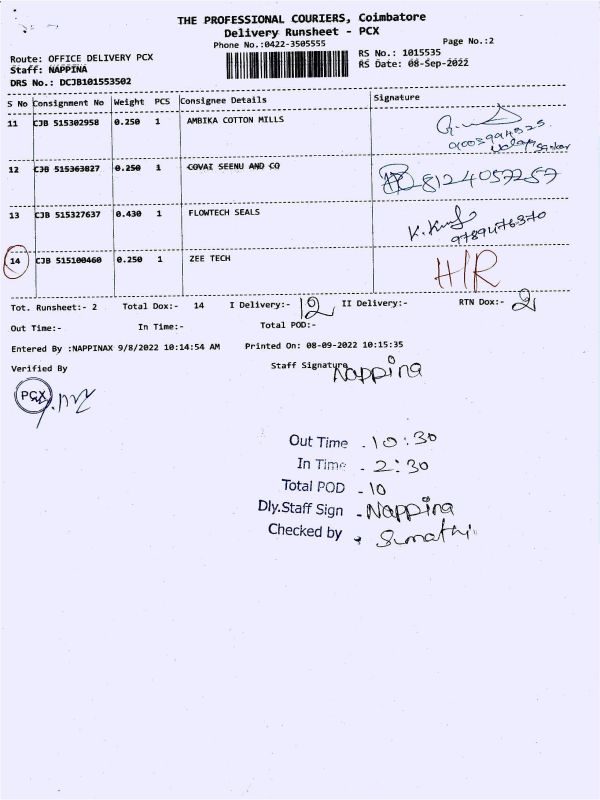 THE PROFESSIONAL COURIERS, Coimbatore
Delivery Runsheet - PCX
Phone No.:0422-3505555
Page No.:2
Route: OFFICE DELIVERY PCX
RS No.: 1015535
Staff: NAPPINA
RS Date: 08-Sep-2022
DRS No.: DCJB101553502
S No Consignment No Weight PCS Consignee Details Signature
11 CJB 515302958 0.250 1 AMBIKA COTTON MILLS
12 CJB 515363827 0.250 1 COVAI SEENU AND CO 8124057257
13 CJB 515327637 0.430 1 FLOWTECH SEALS
9789476370
14 CJB 515100460 0.250 1 ZEE TECH H/R
Tot. Runsheet:- 2 Total Dox:- 14 I Delivery:- 12 II Delivery:- RTN Dox:- 2
Out Time:- In Time:- Total POD:-
Entered By :NAPPINAX 9/8/2022 10:14:54 AM Printed On: 08-09-2022 10:15:35
Verified By Staff Signature Nappina
PCX
Out Time - 10:30
In Time - 2:30
Total POD - 10
Dly.Staff Sign - Nappina
Checked by - Sumathi